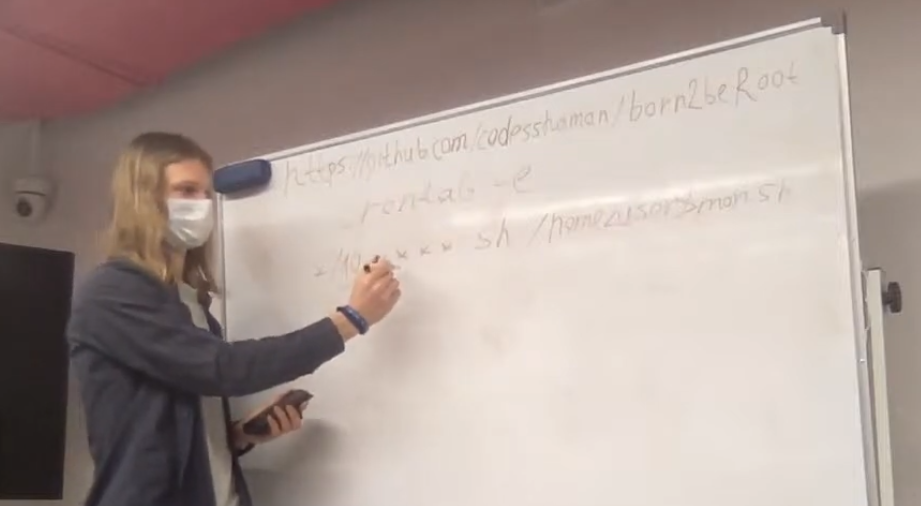 https://github.com/codesshaman/born2beRoot
crontab -e
*/10 * * * * sh /home/user/$mon.sh